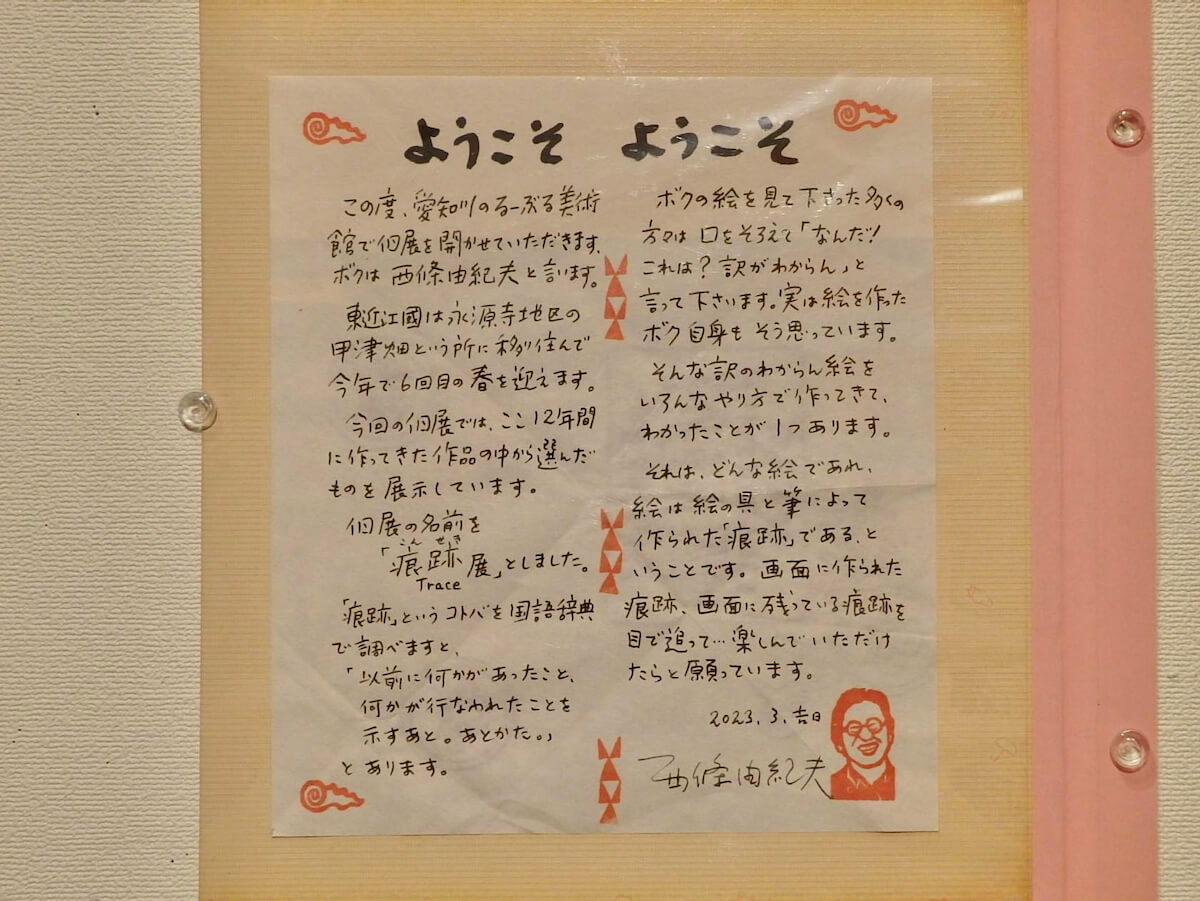 ようこそ ようこそ
この度、愛知川のるーぶる美術
館で個展を開かせていただきます、
ボクは 西條由紀夫と言います。
東近江國は永源寺地区の
甲津畑という所に移り住んで
今年で6回目の春を迎えます。
今回の個展では、ここ12年間
に作ってきた作品の中から選んだ
ものを展示しています。
個展の名前を
こん せき
「痕跡展」としました。
Trace
「痕跡」というコトバを国語辞典
で調べますと、
「以前に何かがあったこと、
何かが行なわれたことを
示すあと。あとかた。」
とあります。
ボクの絵を見て下さった多くの
方々は 口をそろえて「なんだ!
これは?訳がわからん」と
言って下さいます。実は絵を作った
ボク自身もそう思っています。
そんな訳のわからん絵を
いろんなやり方で作ってきて、
わかったことが1つあります。
それは、どんな絵であれ、
絵は絵の具と筆によって
作られた「痕跡」である、と
いうことです。画面に作られた
痕跡、画面に残っている痕跡を
目で追って…楽しんでいただけ
たらと願っています。
2023.3.吉日
西條由紀夫